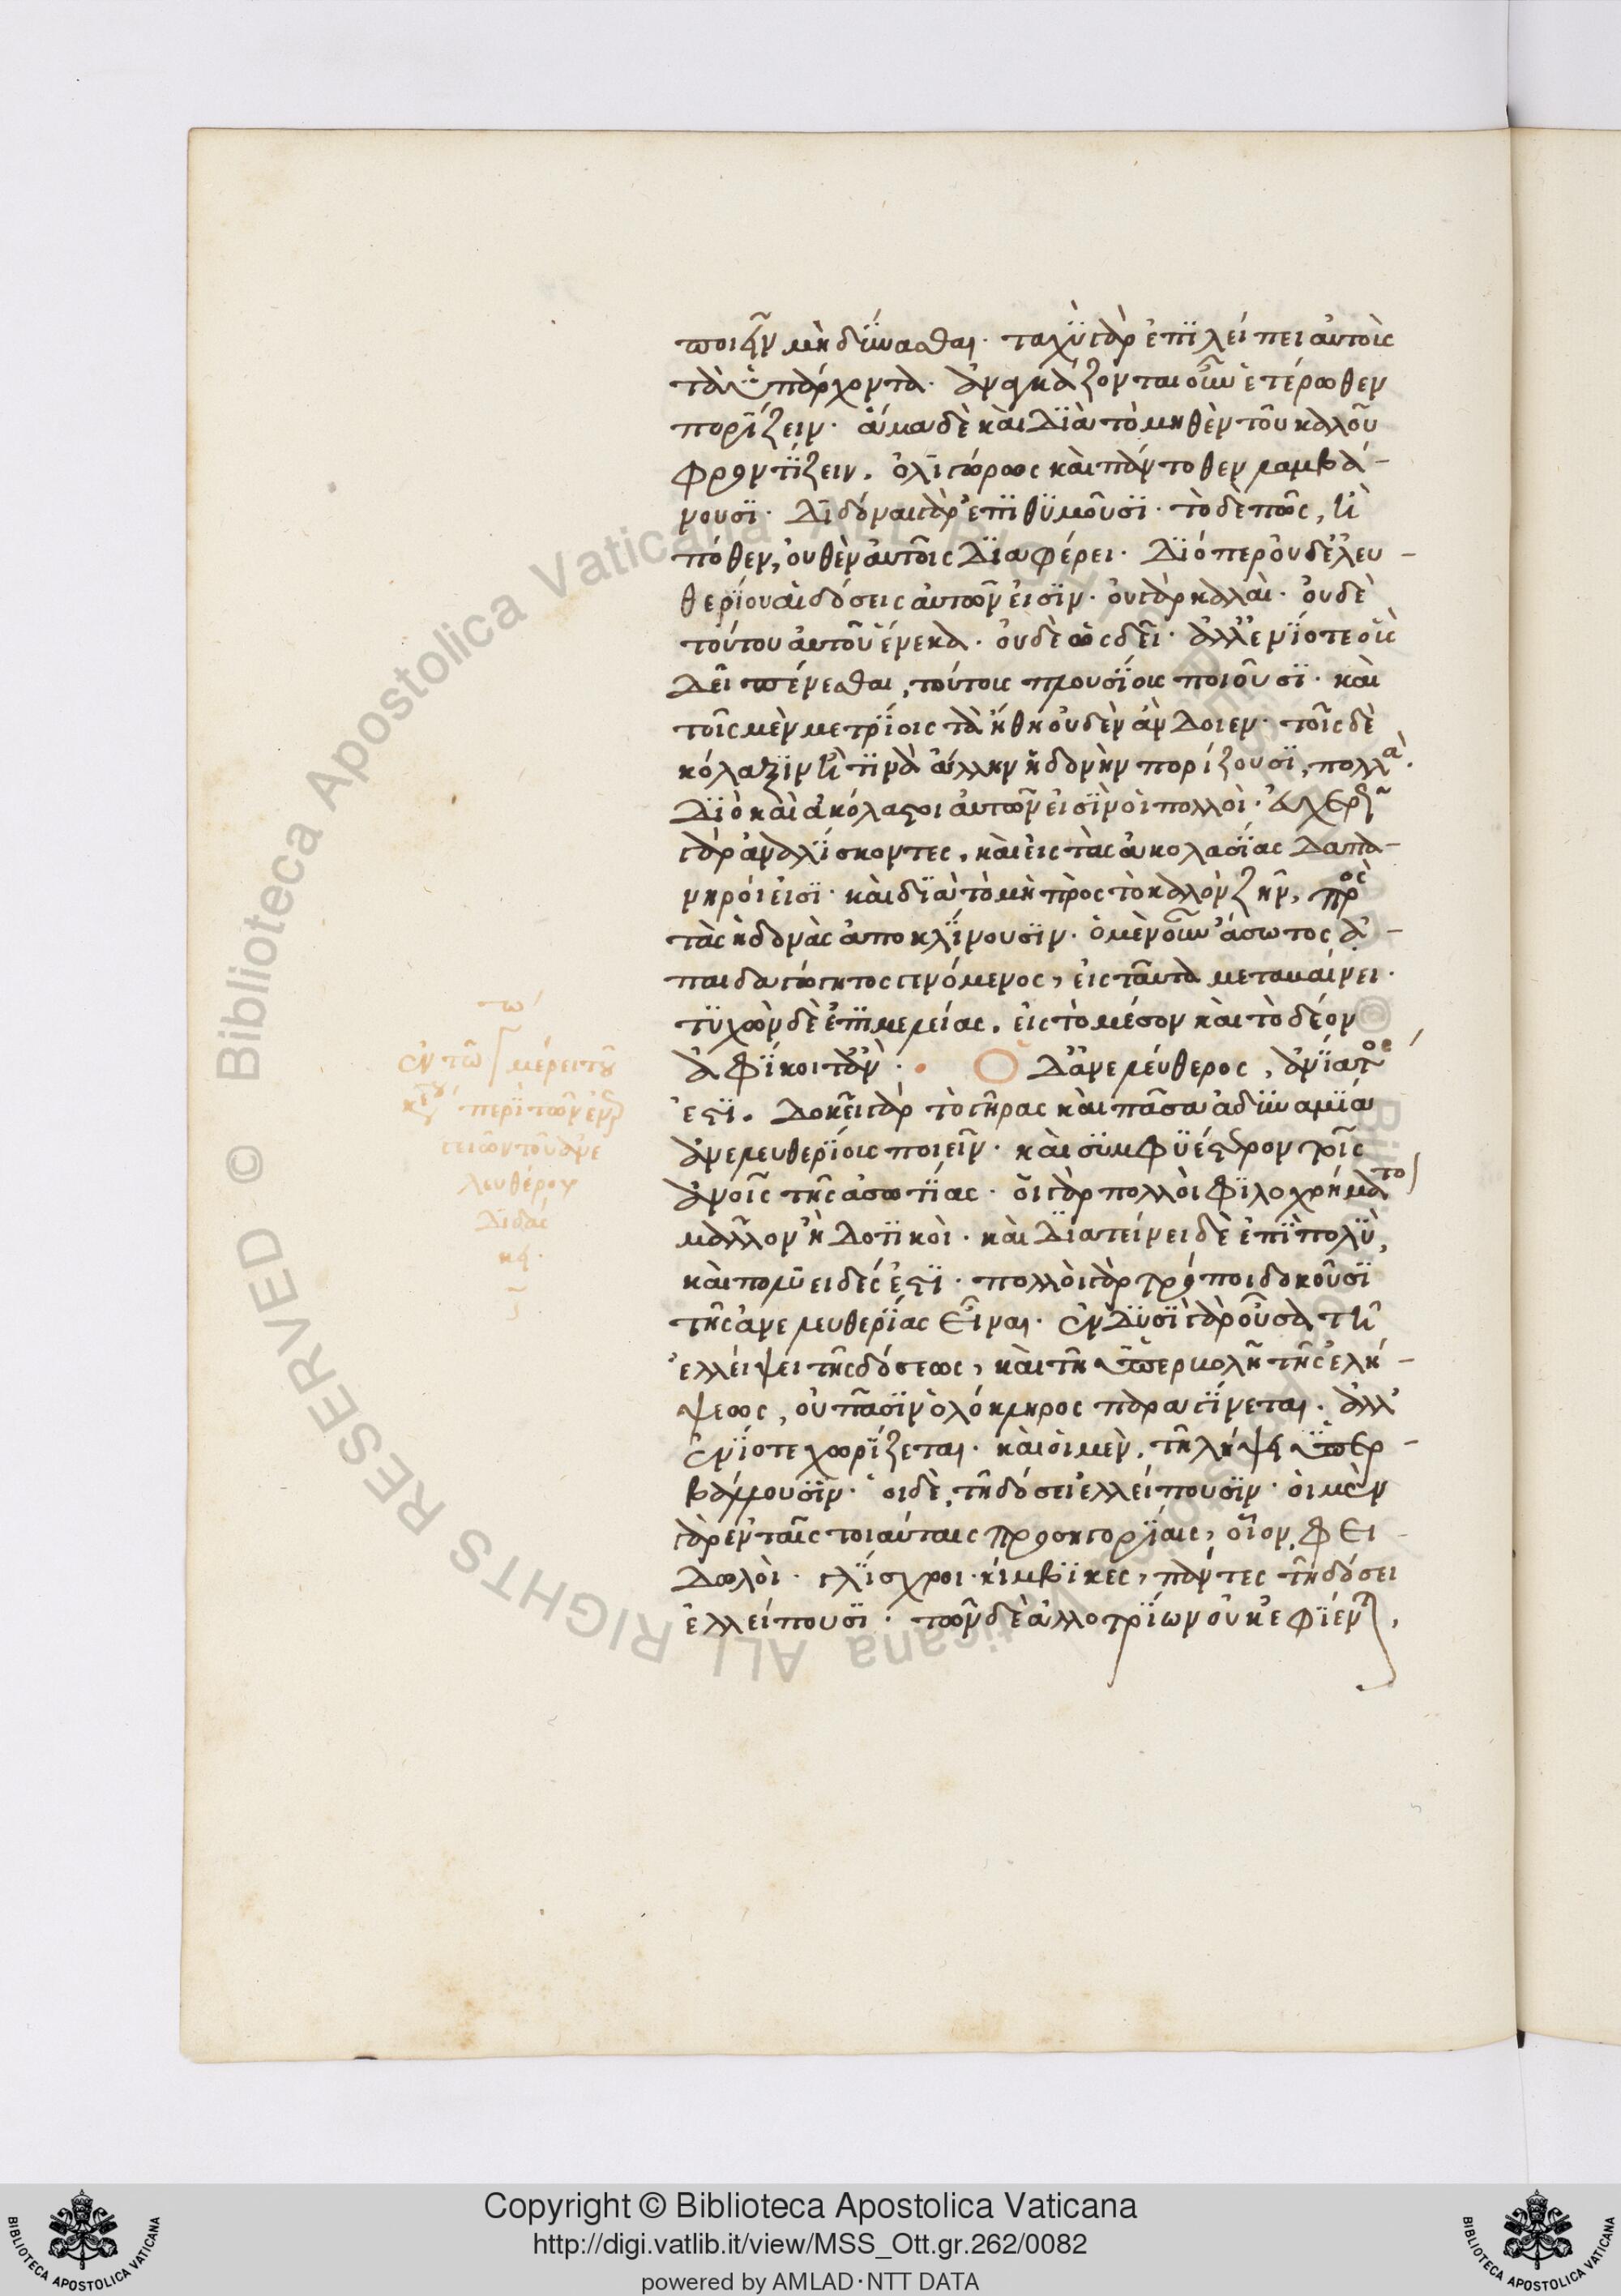 ποιεῖν μὴ δύνασθαι. ταχὺ γὰρ ἐπιλείπει αὐτοὺς
τὰ ὑπάρχοντα. ἀναγκάζονται οὖν ἑτέρωθεν
πορίζειν. ἅμα δὲ καὶ διὰ τὸ μηθὲν τοῦ καλοῦ
φροντίζειν, ὀλιγώρως καὶ πάντοθεν λαμβά-
νουσι. διδόναι γὰρ ἐπιθυμοῦσι. τὸ δὲ πῶς, ἢ
πόθεν, οὐθὲν αὐτοῖς διαφέρει. διόπερ οὐδ' ἐλευ-
θερίου αἱ δόσεις αὐτῶν εἰσίν. οὐ γὰρ καλαί. οὐδὲ
τούτου αὐτοῦ ἕνεκα. οὐδὲ ὡς δεῖ. ἀλλ' ἐνίοτε οὓς
δεῖ πένεσθαι, τούτοις πλουσίοις ποιοῦσι. καὶ
τοῖς μὲν μετρίοις τὰ ἤθη οὐδὲν ἂν δοῖεν. τοῖς δὲ
κόλαξιν ἤ τινα ἄλλην ἡδονὴν πορίζουσι, πολλὰ.
διὸ καὶ ἀκόλαστοι αὐτῶν εἰσὶν οἱ πολλοί. εὐχερῶς
γὰρ ἀναλίσκοντες, καὶ εἰς τὰς ἀκολασίας δαπα-
νηροί εἰσι. καὶ διὰ τὸ μὴ πρὸς τὸ καλὸν ζῆν, πρὸς
τὰς ἡδονὰς ἀποκλίνουσιν. ὁ μὲν οὖν ἄσωτος ἀ-
παιδαγώγητος γινόμενος, εἰς ταῦτα μεταβαίνει.
τυχὼν δὲ ἐπιμελείας, εἰς τὸ μέσον καὶ τὸ δέον
ἀφίκοιτ' ἄν. Ὁ δ' ἀνελεύθερος, ἀνίατός
ἐστι. δοκεῖ γὰρ τὸ γῆρας καὶ πᾶσα ἀδυναμία
ἀνελευθερίοις ποιεῖν. καὶ συμφυέστερον τοῖς
ἀνοῖς τῆς ἀσωτίας. οἱ γὰρ πολλοὶ φιλοχρήματοι
μᾶλλον ἢ δοτικοί. καὶ διατείνει δὲ ἐπὶ πολύ,
καὶ πολυειδές ἐστι. πολλοὶ γὰρ τρόποι δοκοῦσι
τῆς ἀνελευθερίας εἶναι. ἐν δυσὶ γὰρ οὖσα τῇ
ἐλλείψει τῆς δόσεως, καὶ τῇ ὑπερβολῇ τῆς ἐλή-
ψεως, οὐ πᾶσιν ὁλόκληρος παραγίνεται. ἀλλ'
ἐνίοτε χωρίζεται. καὶ οἱ μὲν, τῇ λήψει ὑπερ-
βάλλουσιν. οἱ δὲ, τῇ δόσει ἐλλείπουσιν. οἱ μὲν
γὰρ ἐν ταῖς τοιαύταις προσηγορίαις, οἷον φει-
δωλοί. γλίσχροι. κίμβικες, πάντες τῇ δόσει
ἐλλείπουσι. τῶν δὲ ἀλλοτρίων οὐκ ἐφίενται,
ἐν τῷ μέρει τοῦ
περὶ τῶν
τοῦ ἀνε
λευθέρου
Copyright © Biblioteca Apostolica Vaticana
http://digi.vatlib.it/view/MSS_Ott.gr.262/0082
powered by AMLAD·NTT DATA
BIBLIOTECA APOSTOLICA VATICANA
BIBLIOTECA APOSTOLICA VATICANA